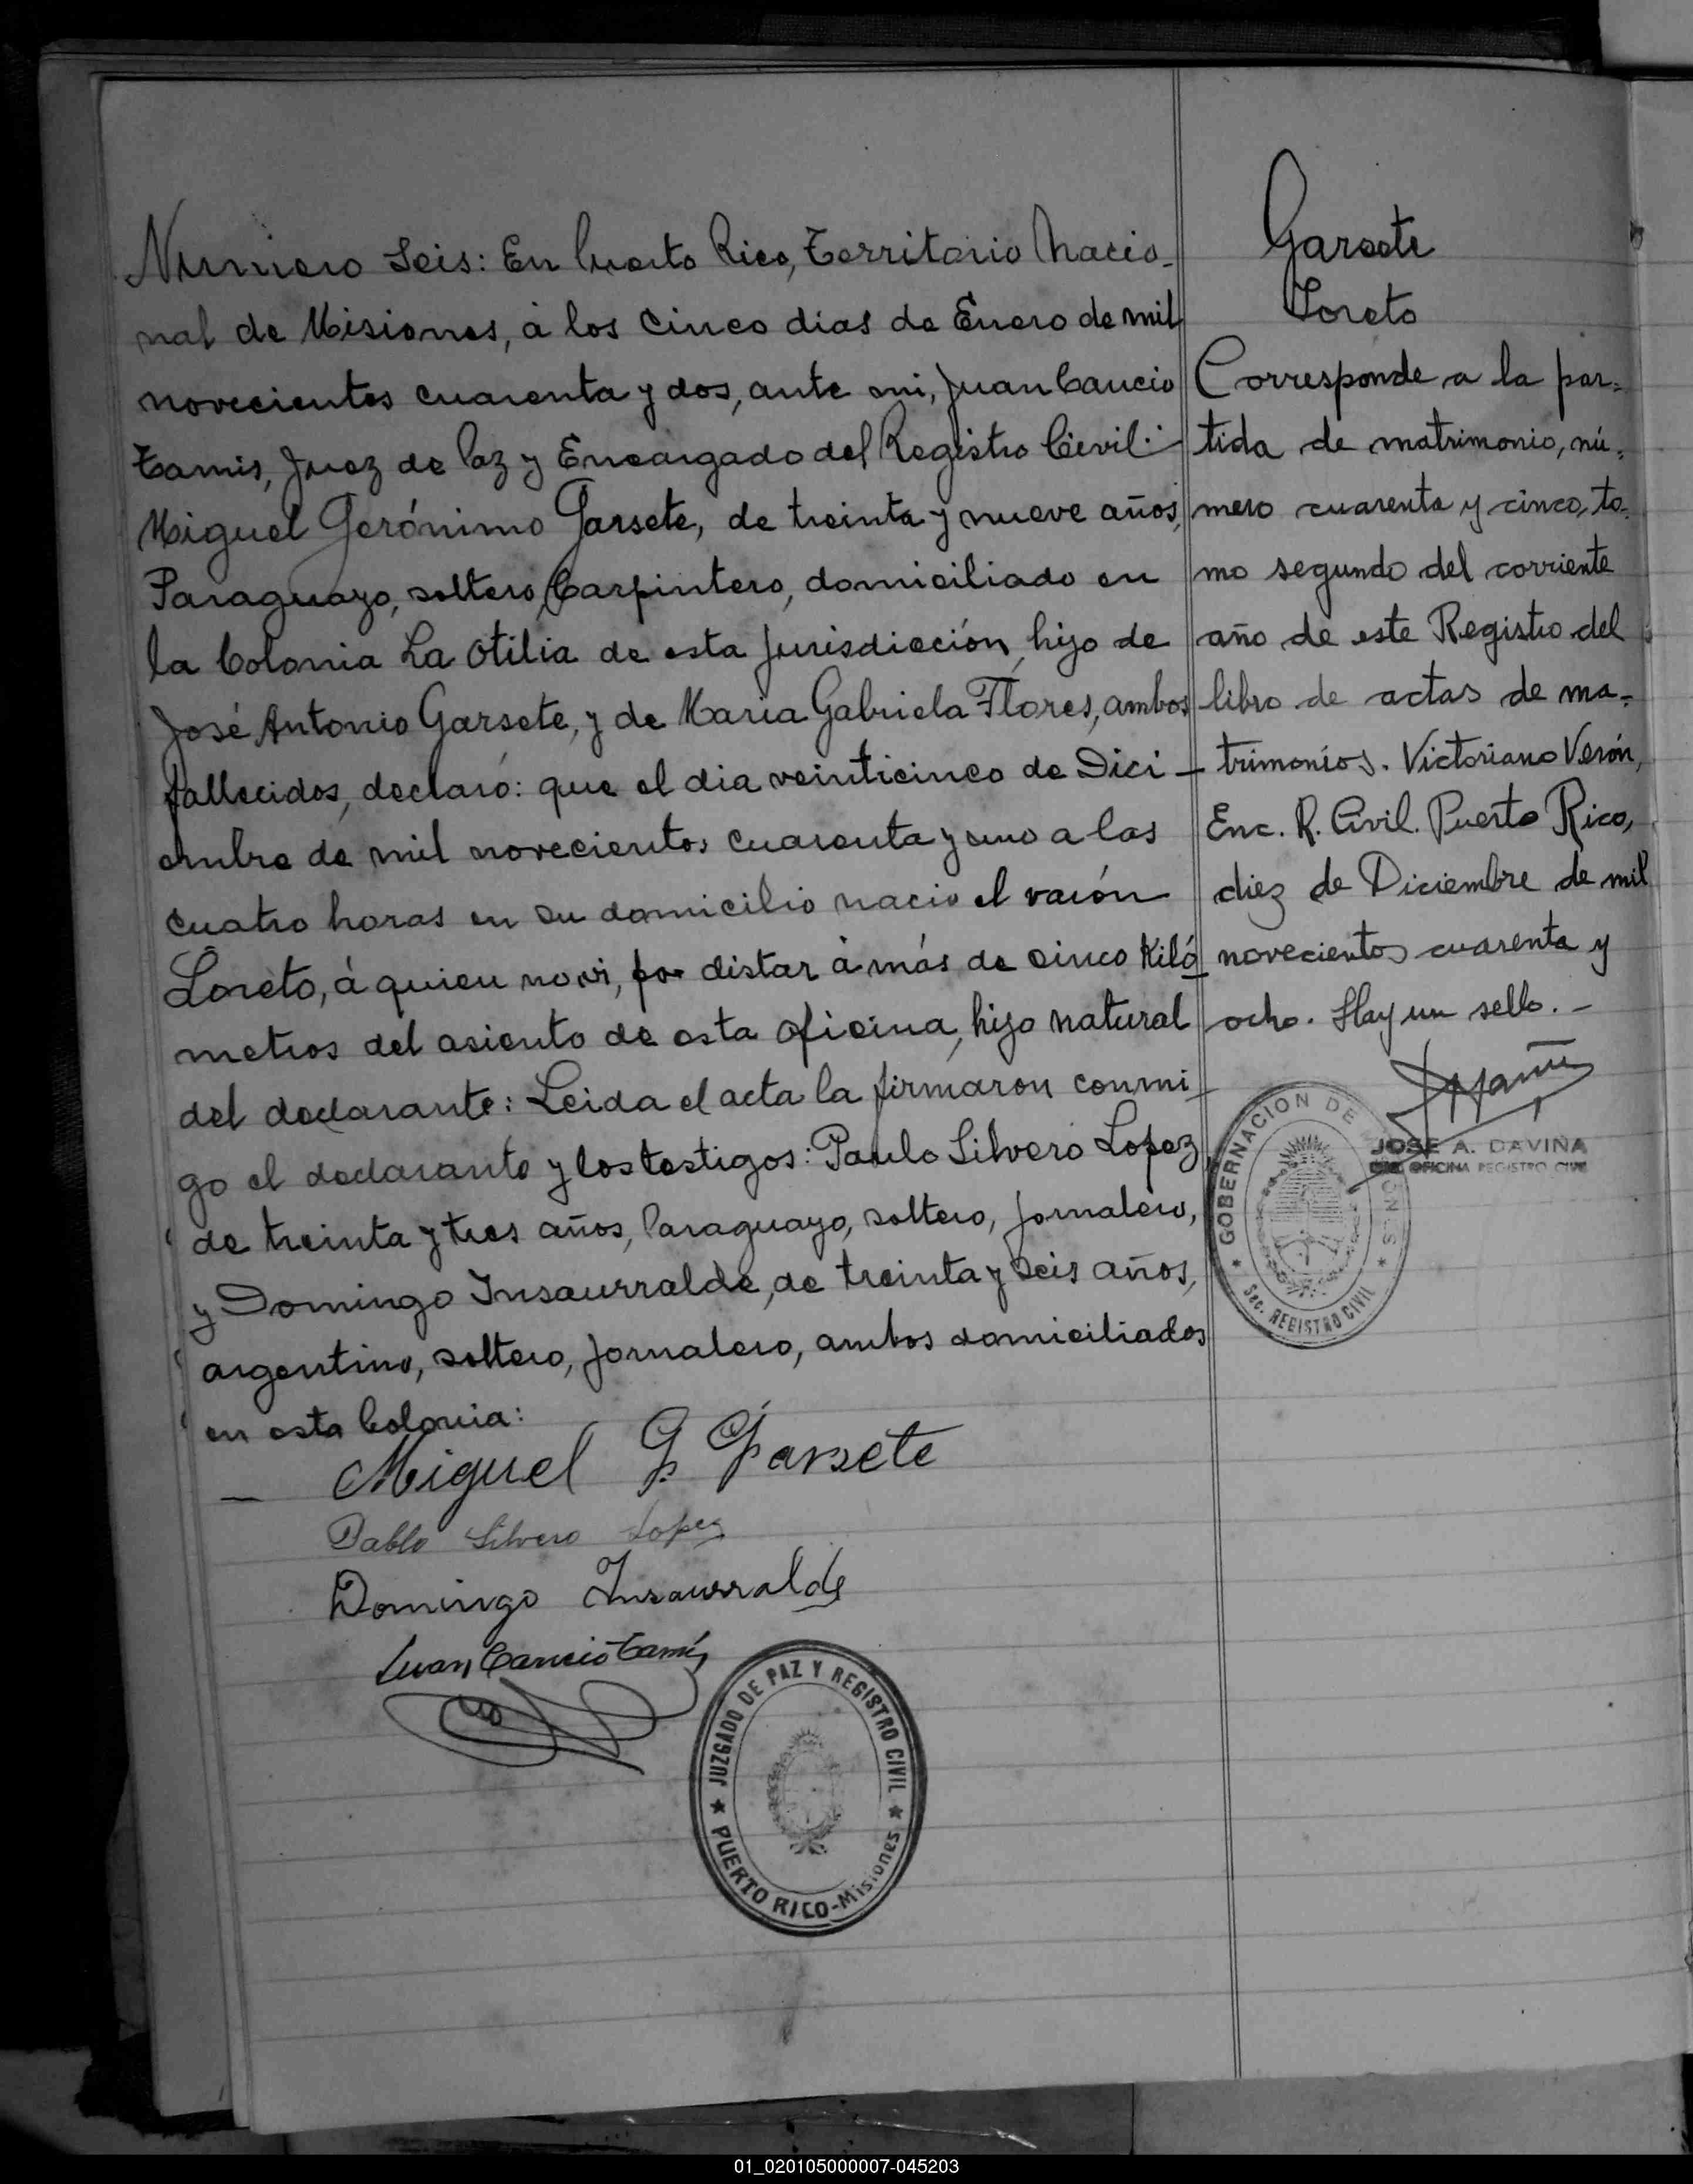 Numero Seis: En Puerto Rico, Territorio Nacio-
nal de Misiones, á los cinco dias de Enero de mil
novecientos cuarenta y dos, ante mi, Juan Caucio
Tamis, Juez de Paz y Encargado del Registro Cievil:
Miguel Gerónimo Garsete, de treinta y nueve años,
Paraguayo, soltero, Carpintero, domiciliado en
la Colonia La Otilia de esta Jurisdicción, hijo de
José Antonio Garsete, y de Maria Gabriela Flores, ambos
fallecidos, declaró: que el dia veinticinco de Dici-
embre de mil novecientos cuarenta y uno a las
cuatro horas en su domicilio nacio el varón
Loreto, á quien no vi, por distar á más de cinco Kiló-
metros del asiento de esta oficina, hijo natural
del declarante: Leida el acta la firmaron conmi-
go el declarante y los testigos: Paulo Silvero Lopez,
de treinta y tres años, Paraguayo, soltero, jornalero,
y Domingo Insaurralde, de treinta y seis años,
argentino, soltero, jornalero, ambos domiciliados
en esta Colonia:
Miguel G. Garsete
Pablo Silvero Lopez
Domingo Insaurralde
Juan Caucio Tamis
JUZGADO DE PAZ Y REGISTRO CIVIL
PUERTO RICO-Misiones
Garsete
Loreto
Corresponde a la par-
tida de matrimonio, nú-
mero cuarenta y cinco, to-
mo segundo del corriente
año de este Registro del
libro de actas de ma-
trimonios. Victoriano Verón,
Enc. R. Civil. Puerto Rico,
diez de Diciembre de mil
novecientos cuarenta y
ocho. Hay un sello.-
JOSE A. DAVIÑA
OFICINA REGISTRO CIVIL
GOBERNACION DE MISIONES
Sec. REGISTRO CIVIL
01_020105000007-045203